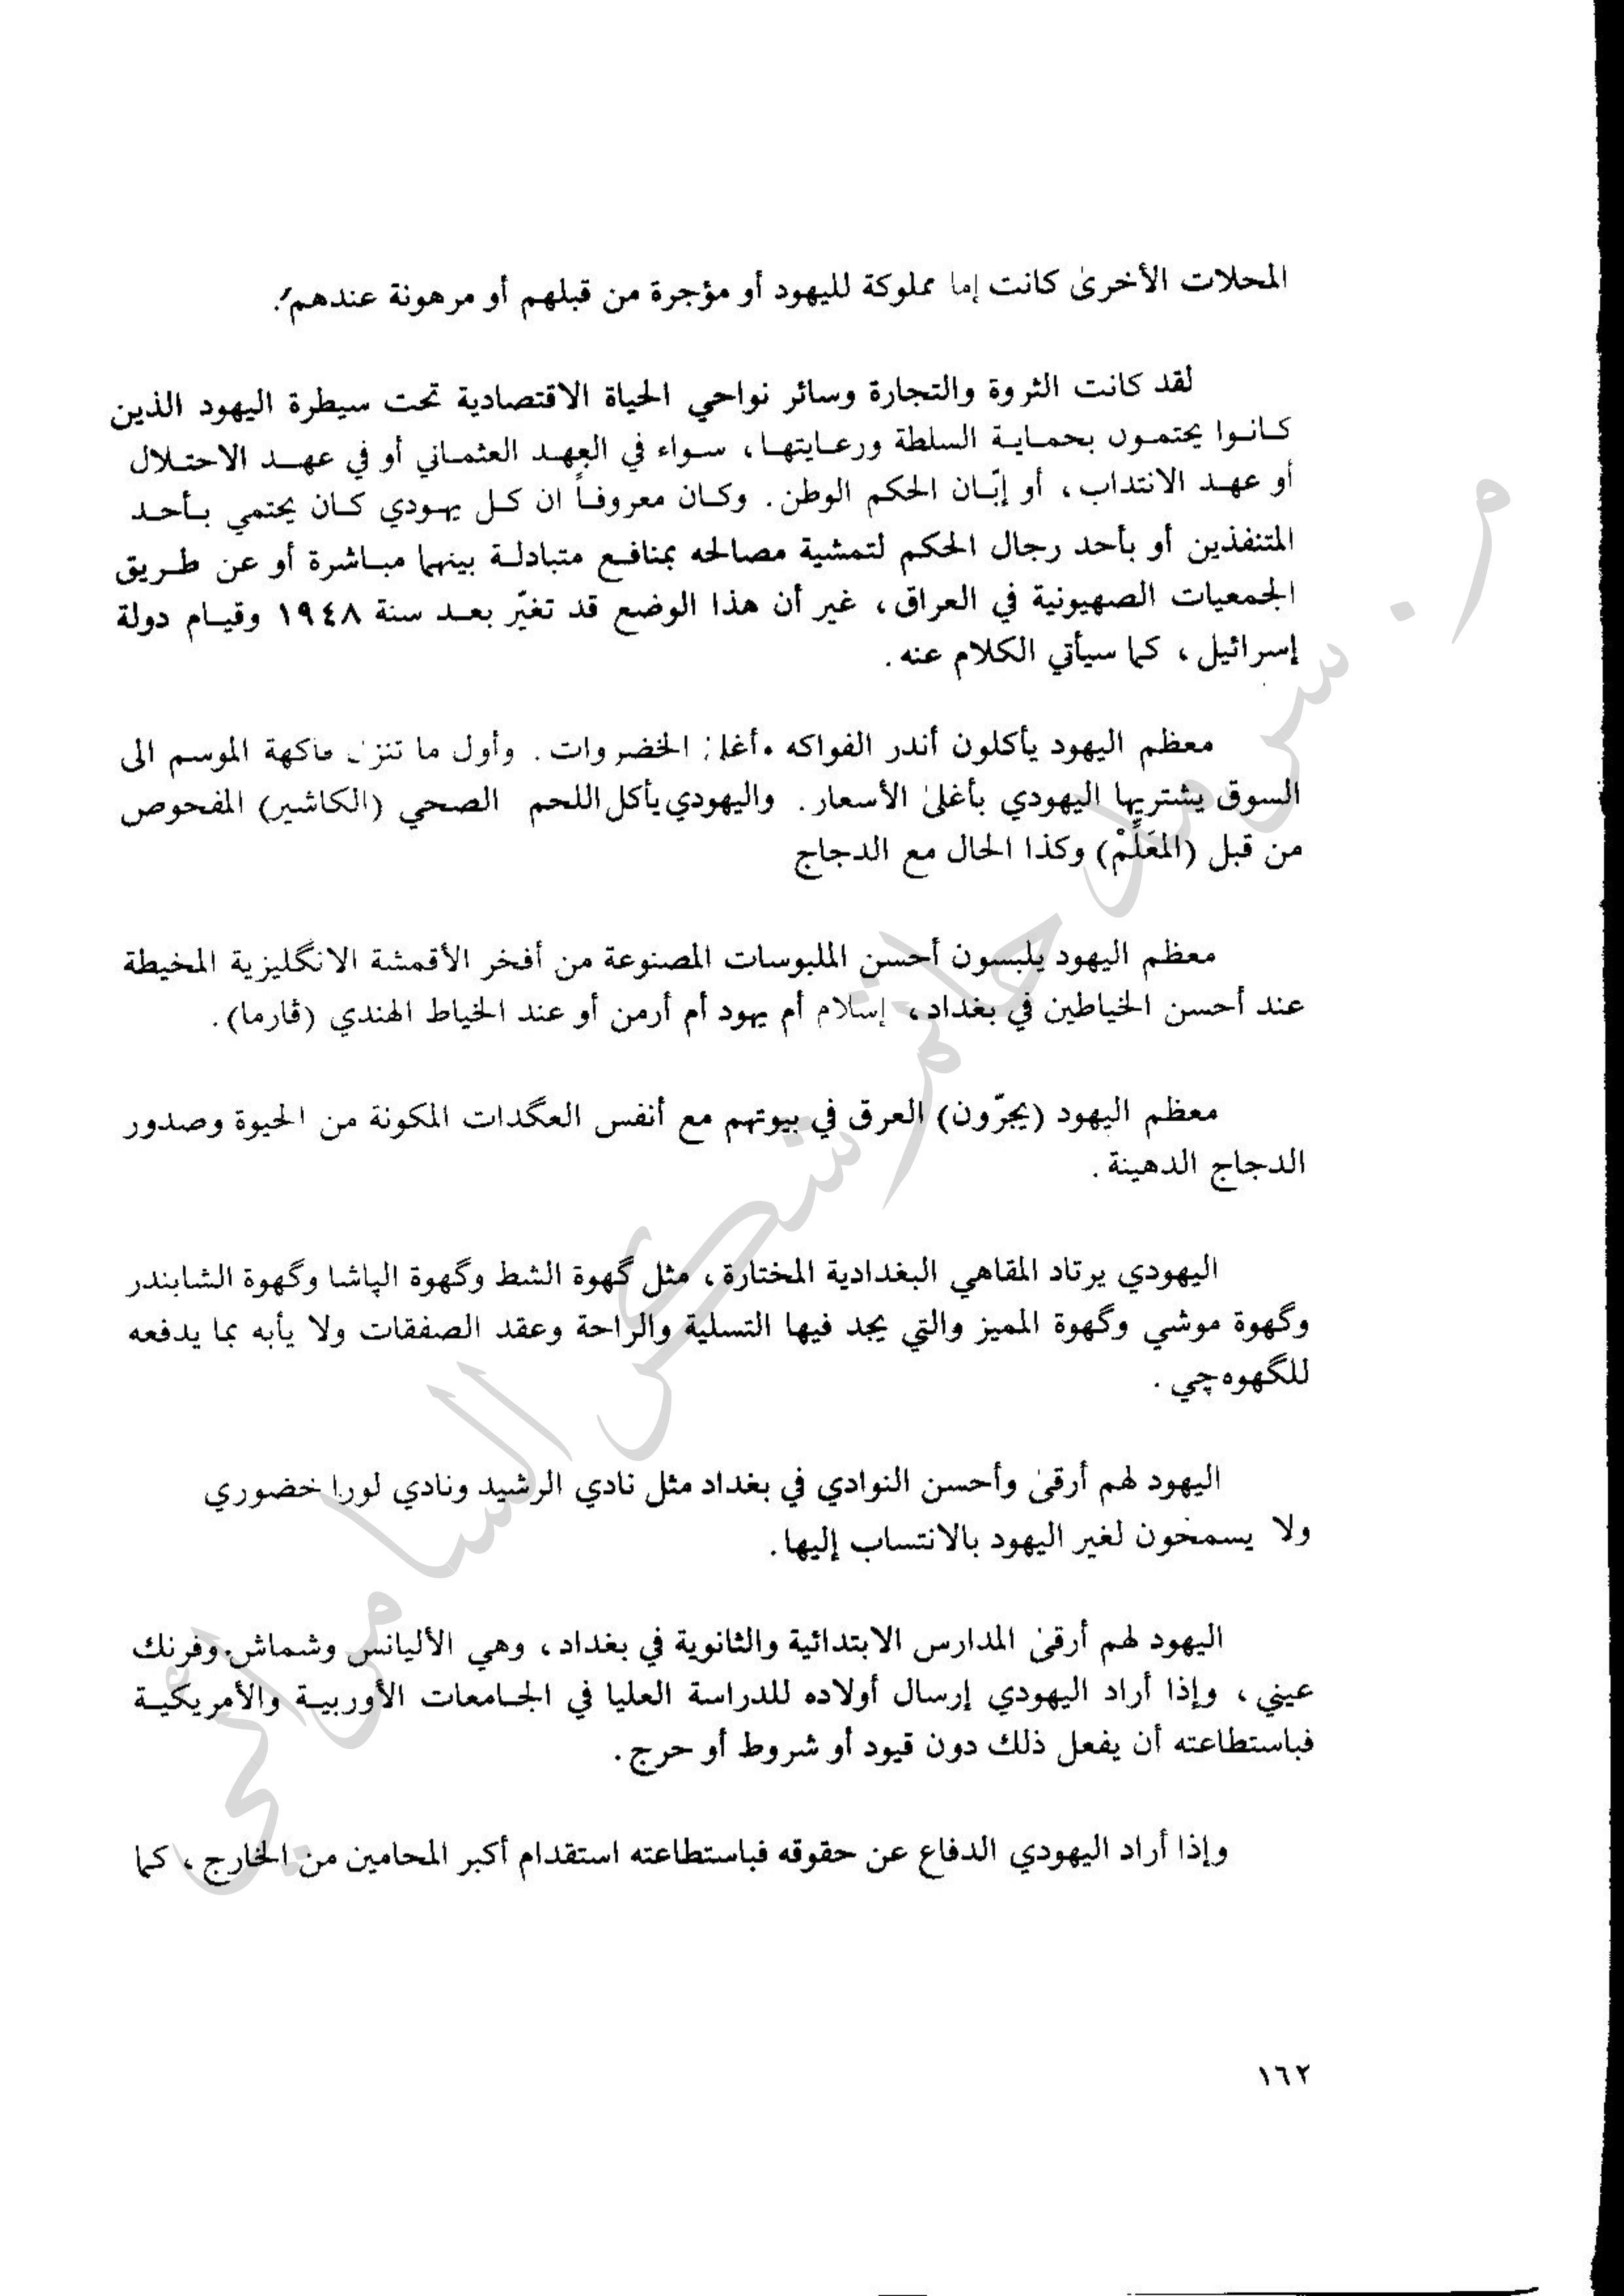 المحلات الأخرى كانت إما مملوكة لليهود أو مؤجرة من قبلهم أو مرهونة عندهم.
لقد كانت الثروة والتجارة وسائر نواحي الحياة الاقتصادية تحت سيطرة اليهود الذين
كانوا يحتمون بحماية السلطة ورعايتها، سواء في العهد العثماني أو في عهد الاحتلال
أو عهد الانتداب، أو إبّان الحكم الوطن. وكان معروفاً ان كل يهودي كان يحتمي بأحد
المتنفذين أو بأحد رجال الحكم لتمشية مصالحه بمنافع متبادلة بينهما مباشرة أو عن طريق
الجمعيات الصهيونية في العراق، غير أن هذا الوضع قد تغيّر بعد سنة ١٩٤٨ وقيام دولة
إسرائيل، كما سيأتي الكلام عنه.
معظم اليهود يأكلون أندر الفواكه وأغلى الخضروات. وأول ما تنزل فاكهة الموسم الى
السوق يشتريها اليهودي بأغلى الأسعار. واليهودي يأكل اللحم الصحي (الكاشير) المفحوص
من قبل (المعَلِّمْ) وكذا الحال مع الدجاج
معظم اليهود يلبسون أحسن الملبوسات المصنوعة من أفخر الأقمشة الانگليزية المخيطة
عند أحسن الخياطين في بغداد، إسلام أم يهود أم أرمن أو عند الخياط الهندي (ڤارما).
معظم اليهود (يجرّون) العرق في بيوتهم مع أنفس العگدات المكونة من الحيوة وصدور
الدجاج الدهينة.
اليهودي يرتاد المقاهي البغدادية المختارة، مثل گهوة الشط وگهوة الپاشا وگهوة الشابندر
وگهوة موشي وگهوة المميز والتي يجد فيها التسلية والراحة وعقد الصفقات ولا يأبه بما يدفعه
للگهوه چي.
اليهود لهم أرقى وأحسن النوادي في بغداد مثل نادي الرشيد ونادي لورا خضوري
ولا يسمحون لغير اليهود بالانتساب إليها.
اليهود لهم أرقى المدارس الابتدائية والثانوية في بغداد، وهي الأليانس وشماش وفرنك
عيني، وإذا أراد اليهودي إرسال أولاده للدراسة العليا في الجامعات الأوربية والأمريكية
فباستطاعته أن يفعل ذلك دون قيود أو شروط أو حرج.
وإذا أراد اليهودي الدفاع عن حقوقه فباستطاعته استقدام أكبر المحامين من الخارج، كما
١٦٢
سرمد حاتم شكر السامرائي